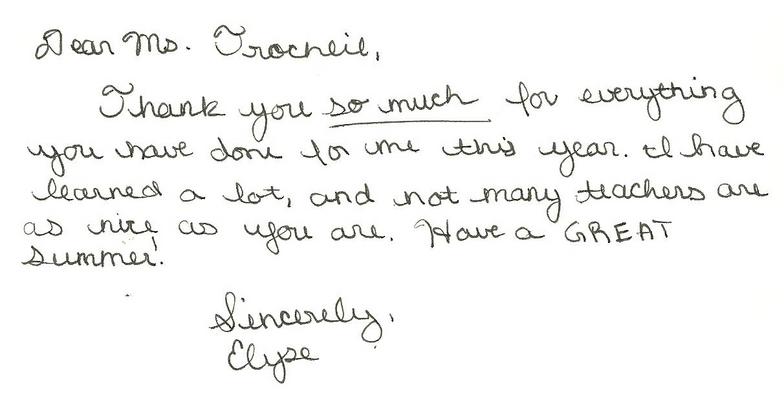 Dear Ms. Trocheil,
Thank you so much for everything
you have done for me this year. I have
learned a lot, and not many teachers are
as nice as you are. Have a GREAT
summer!
Sincerely,
Elyse